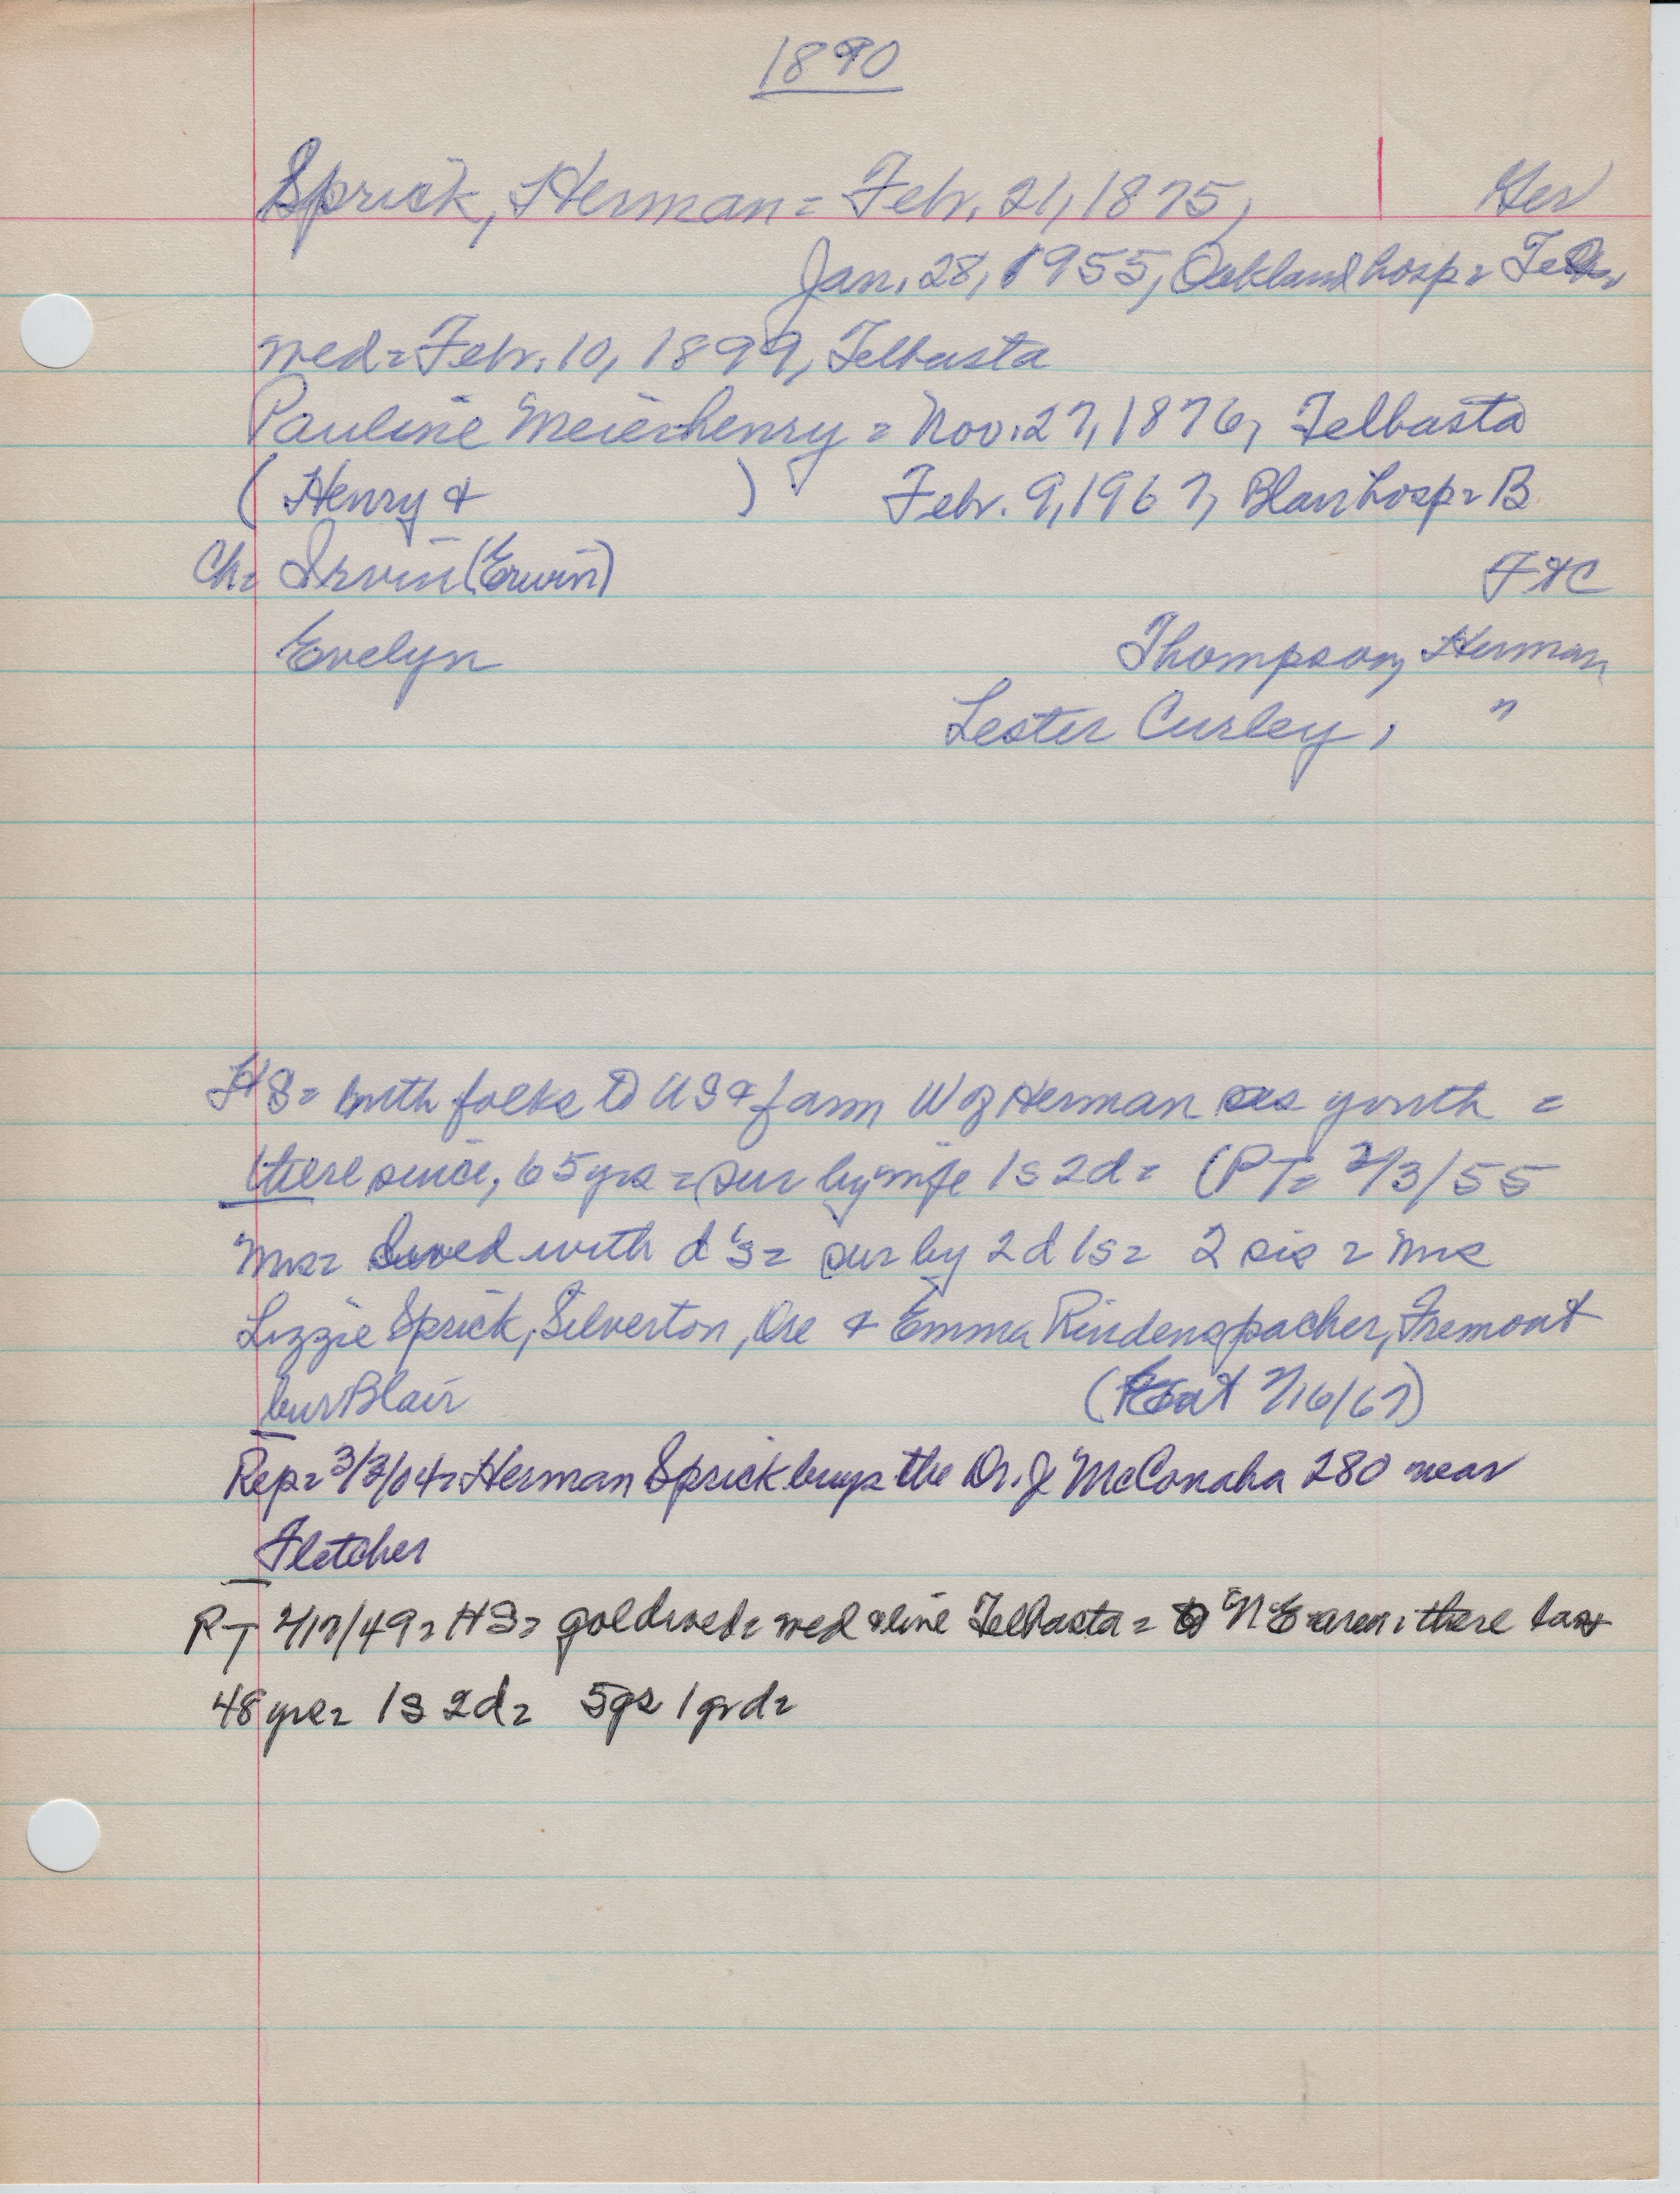 1890
Sprick, Herman = Febr. 21, 1875, Ger
Jan. 28, 1955, Oakland hosp =
wed = Febr. 10, 1899, Telbasta
Pauline Meierhenry = Nov. 27, 1876, Telbasta
( Henry & ) Febr. 9, 1967, Blair hosp = B
Ch = Irvin (Erwin)
Evelyn Thompson, Herman
Lester Curley, "
HS = with folks to US & farm W of Herman as youth =
there since, 65 yrs = sur by wife 1s 2d = (PT = 2/3/55
Mrs = lived with d's = sur by 2d 1s = 2 sis = Mrs
Lizzie Sprick, Silverton, Ore & Emma Rindenspacher, Fremont
bur Blair 2/16/67)
Rep = 3/3/04 = Herman Sprick buys the Dr. J McConaha 280 near
Fletcher
PT 2/17/49 = HS = gold wed = wed Telbasta = area; there last
48 yrs = 1s 2d = 5gs 1grd =